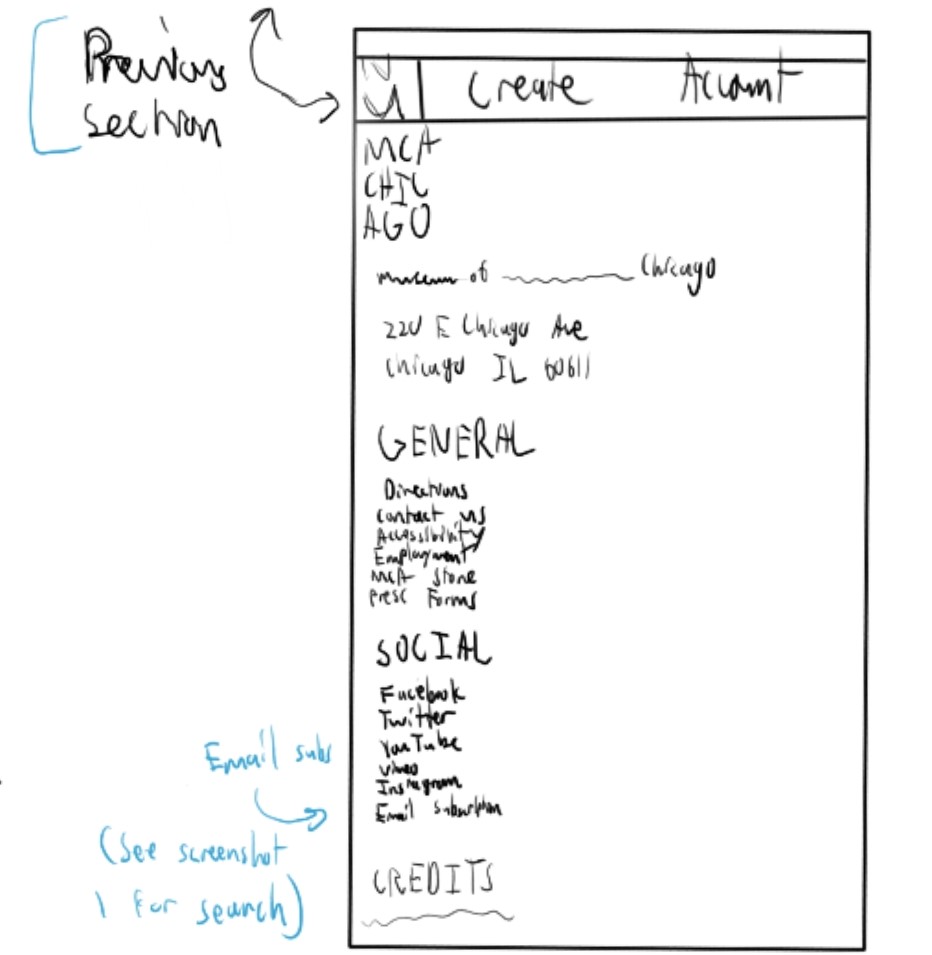 Previous
section
Create Account
MCA
CHIC
AGO
museum of Chicago
220 E Chicago Ave
Chicago IL 60611
GENERAL
Directions
Contact us
Accessibility
Employment
MCA Store
Forms
SOCIAL
Facebook
Twitter
YouTube
Vimeo
Instagram
Email subscription
Email subs
(See screenshot
1 for search)
CREDITS